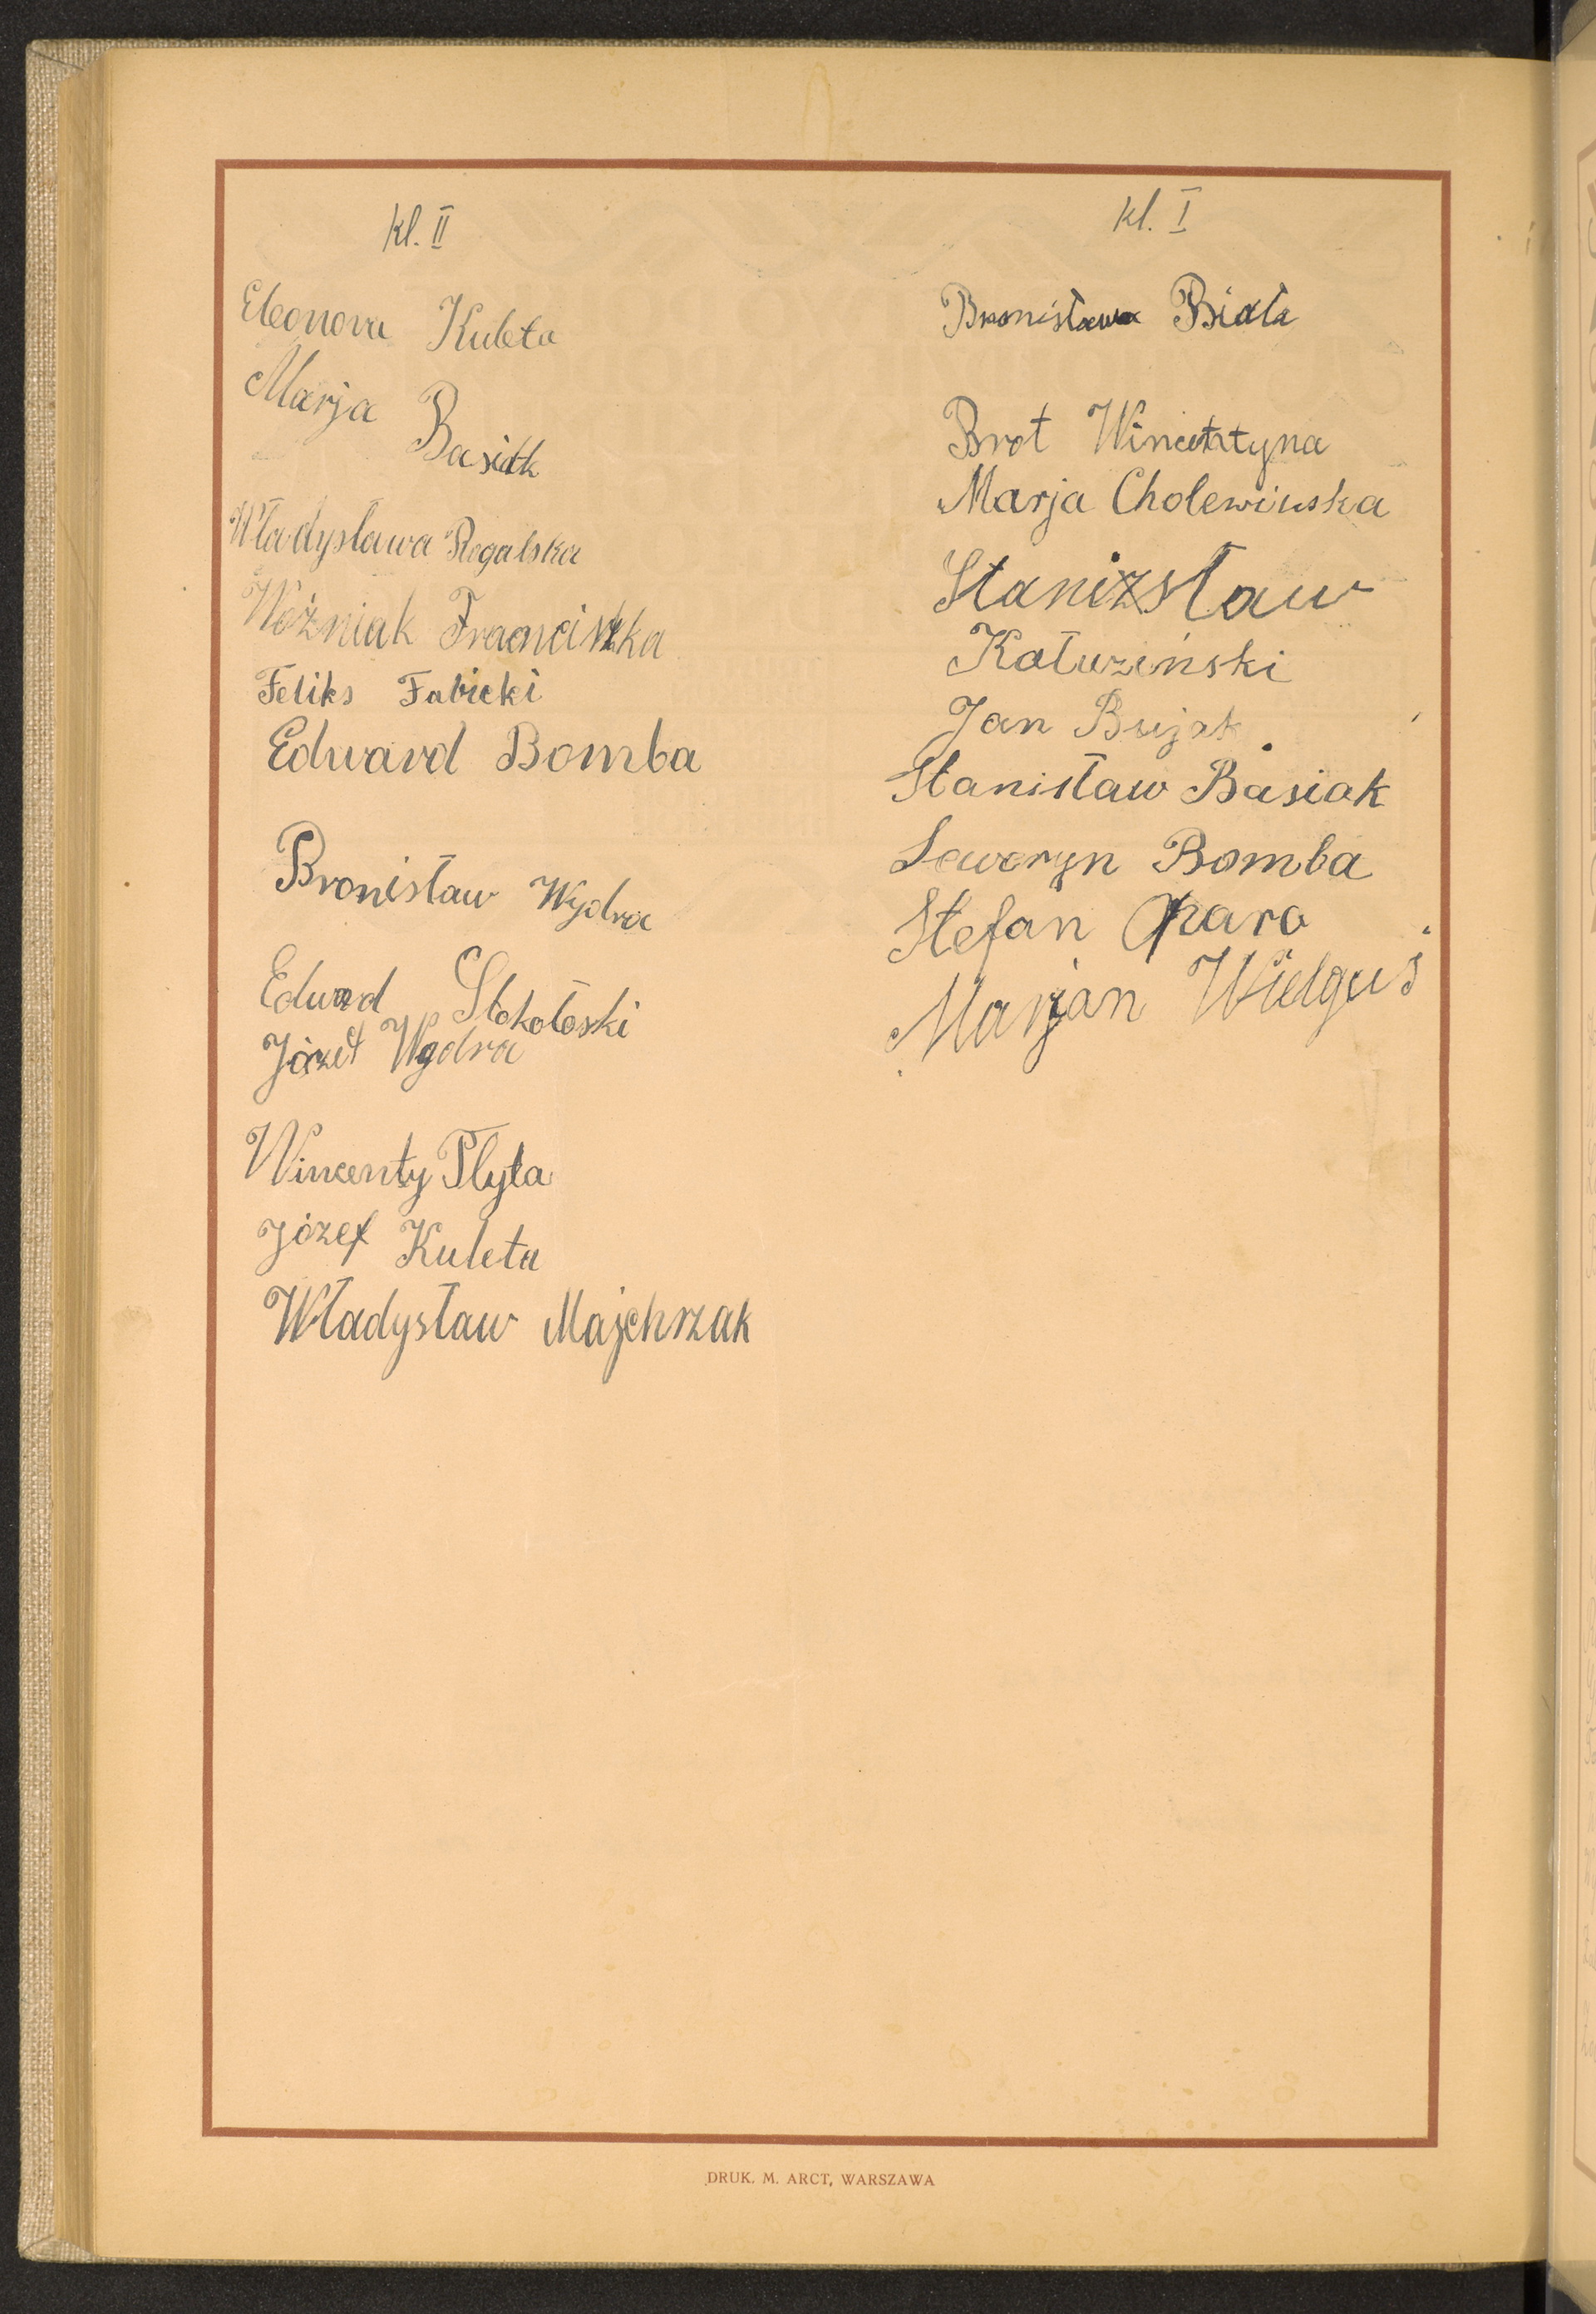 kl. II
Eleonora Kuleta
Marja Basiak
Władysława Rogalska
Woźniak Franciszka
Feliks Fabicki
Edward Bomba
Bronisław Wydra
Edward Stokołoski
Józef Wydra
Wincenty Płyta
Józef Kuleta
Władysław Majchrzak
kl. I
Bronisława Biała
Brot
Marja Cholewinska
Stanisław
Kałuziński
Jan Bujak
Stanisław Basiak
Seweryn Bomba
Stefan Opara
Marjan Wielgus
DRUK. M. ARCT, WARSZAWA